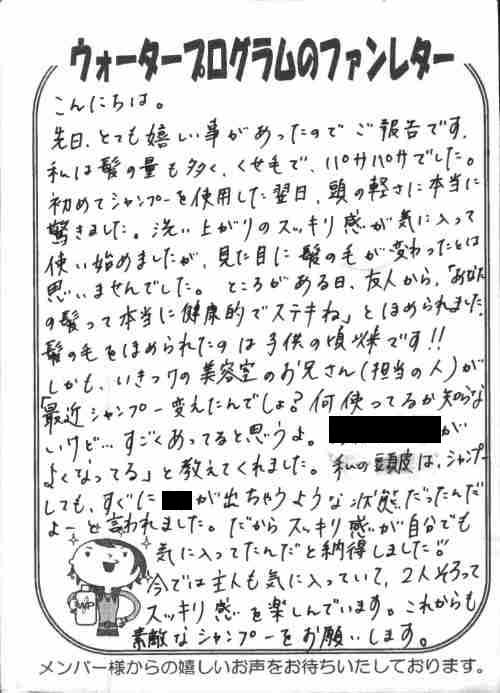 ウォータープログラムのファンレター
こんにちは。
先日、とても嬉しい事があったのでご報告です。
私は髪の量も多く、くせ毛で、パサパサでした。
初めてシャンプーを使用した翌日、頭の軽さに本当に
驚きました。洗い上がりのスッキリ感が気に入って
使い始めましたが、見た目に髪の毛が変わったとは
思いませんでした。ところがある日、友人から、「あなた
の髪って本当に健康的でステキね」とほめられました。
髪の毛をほめられたのは子供の頃以来です!!
しかも、いきつけの美容室のお兄さん(担当の人)が
「最近シャンプー変えたんでしょ?何使ってるか知らな
いけど…すごくあってると思うよ。 が
よくなってる」と教えてくれました。私の頭皮は、シャンプー
しても、すぐに が出ちゃうような状態だったんだ
よーと言われました。だからスッキリ感が自分でも
気に入ってたんだと納得しました!!
今では主人も気に入っていて、2人そろって
スッキリ感を楽しんでいます。これからも
素敵なシャンプーをお願いします。
WP
メンバー様からの嬉しいお声をお待ちいたしております。